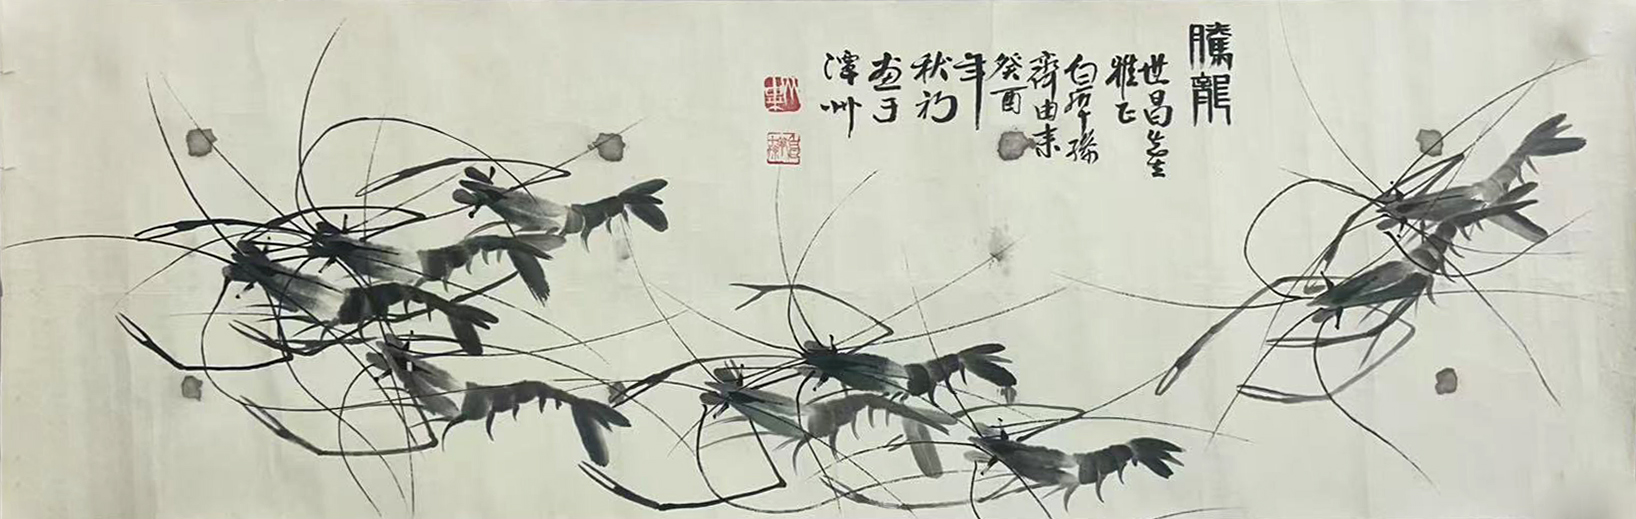 騰龍
世昌先生
雅正
白石孫
齊由来
癸酉
年
秋初
画于
潭州